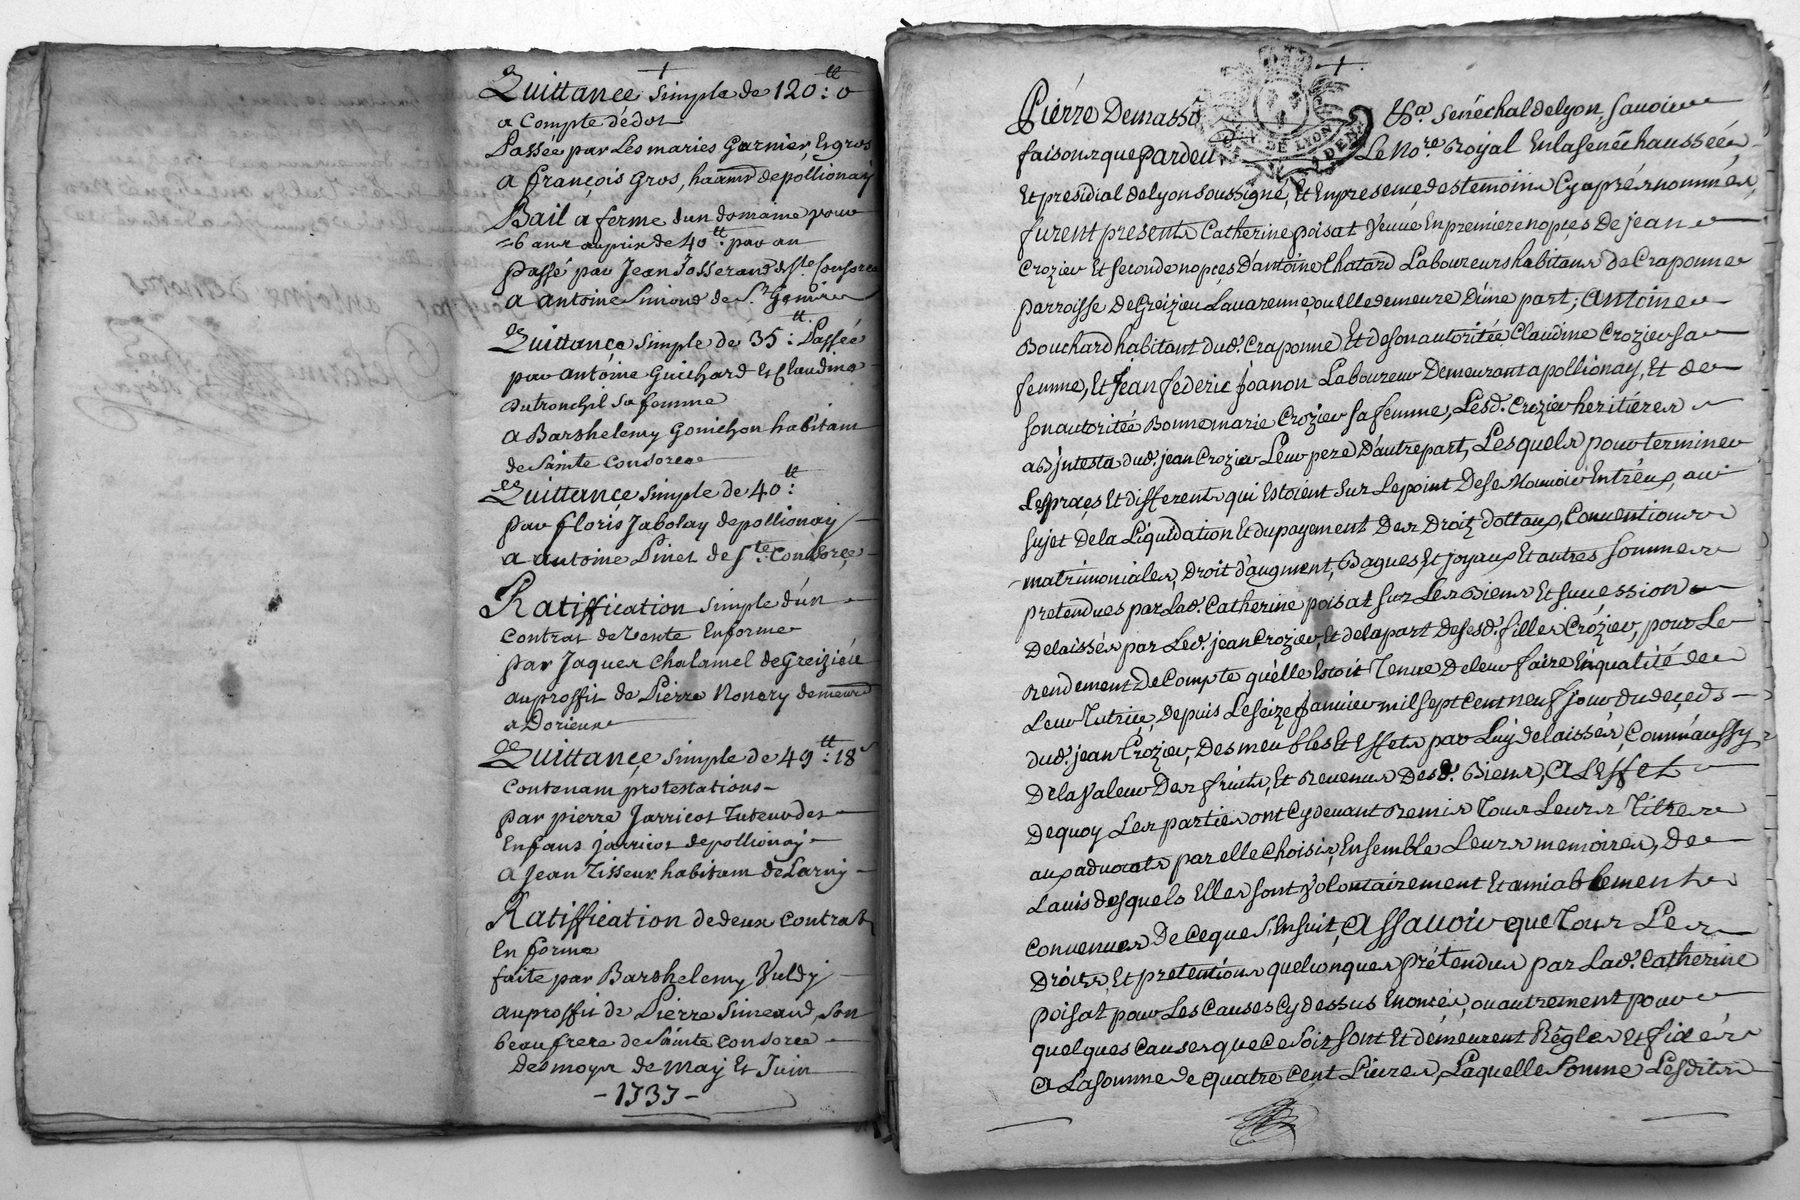 +
Quittance simple de 120tt: 0
a Compte dedot
Passée par Les maries Garnier, Et gros
A françois Gros, habitant depollionay
Bail a ferme dun domaine pour
=6 ans auprix de 40tt: par an
passé par Jean Josserand de Ste Consorce
a antoine Simond de St Genis
Quittance simple de 35tt: Passée
par antoine Guichard Et Claudine
Dutronchil sa femme
a Barthelemy Gonichon habitant
de Sainte Consorce
Quittance simple de 40tt:
par floris Jabolay depollionay
a antoine Pinet de Ste: Consorce
Ratiffication simple d'un
contrat de vente En forme
par Jaques Chalamel de Greizieu
auproffit de Pierre Noncry demeurt
a Dorieux
Quittance simple de 49tt: 18s
Contenant protestations
par pierre Jarricot Tuteur des
Enfans jarricot depollionay
a Jean Tisseur habitant de Larny
Ratiffication de deux Contrats
En forme
faite par Barthelemy Vuldy
auproffit de Pierre Simeand, son
beau frere de Sainte Consorce
Des moys de May Et Juin
- 1737 -
+
Pierre Demasso
Sénéchal de Lyon, Sauoir
faisons que pardeu
Le Nore Royal En la senéchaussée,
Et présidial de Lyon soussigné, Et En presence des temoins Cy aprés nommés,
furent presents Catherine poisat Veuve En premiere nopces De jean
Crozier Et seconde nopces D'antoine Chatard Laboureurs habitans de Craponne
parroisse De Greizieu Lauarenne, ou Elle demeure D'une part; Antoine
Bouchard habitant dud. Craponne Et de son autoritée Claudine Crozier sa
femme, Et jean federic Joanon Laboureur Demeurant a pollionay, Et de
son autoritée Bonne marie Crozier sa femme, Lesd. Crozier heritiéres
ab jntesta dud. jean Crozier Leur pere D'autre part, Lesquels pour terminer
Les proces Et differents qui Estoient sur Le point De se Mouuoir Entr'eux, au
sujet de la Liquidation Et du payement Des Droitz dottaux, Conuentions
matrimoniales, Droit d'augment, Bagues Et joyaux Et autres sommes
pretendues par Lad. Catherine poisat sur Les Biens Et succession
Delaissés par Led. jean Crozier, Et de la part Desesd. filles Crozier, pour Le
rendement De Compte qu'elle Estoit Tenue De leur faire En qualité de
Leur Tutrice, Depuis Le seize januier mil sept Cent neuf jour du deçeds
dud. jean Crozier, Des meubles Et Effets par Luy delaissés, Comm'aussy
De la Valeur Des fruits, Et Revenus Desd. Biens, A L'Effet
Dequoy Les parties ont Cy deuant Remis Tous Leurs Titres
aux aduocats par elle choisis, Ensemble Leurs memoires, de
L'auis desquels Elles sont Volontairement Et amiablement
Conuenues De Ceque S'Ensuit, Assauoir que Tous Les
Droits, Et pretentions quelconques prétendues par Lad. Catherine
poisat pour Les Causes Cy dessus Enoncées, ou autrement pour
quelques Causes que Ce soit sont Et demeurent Réglés Et fixés
A La somme de quatre Cent Livres, Laquelle somme Lesdits